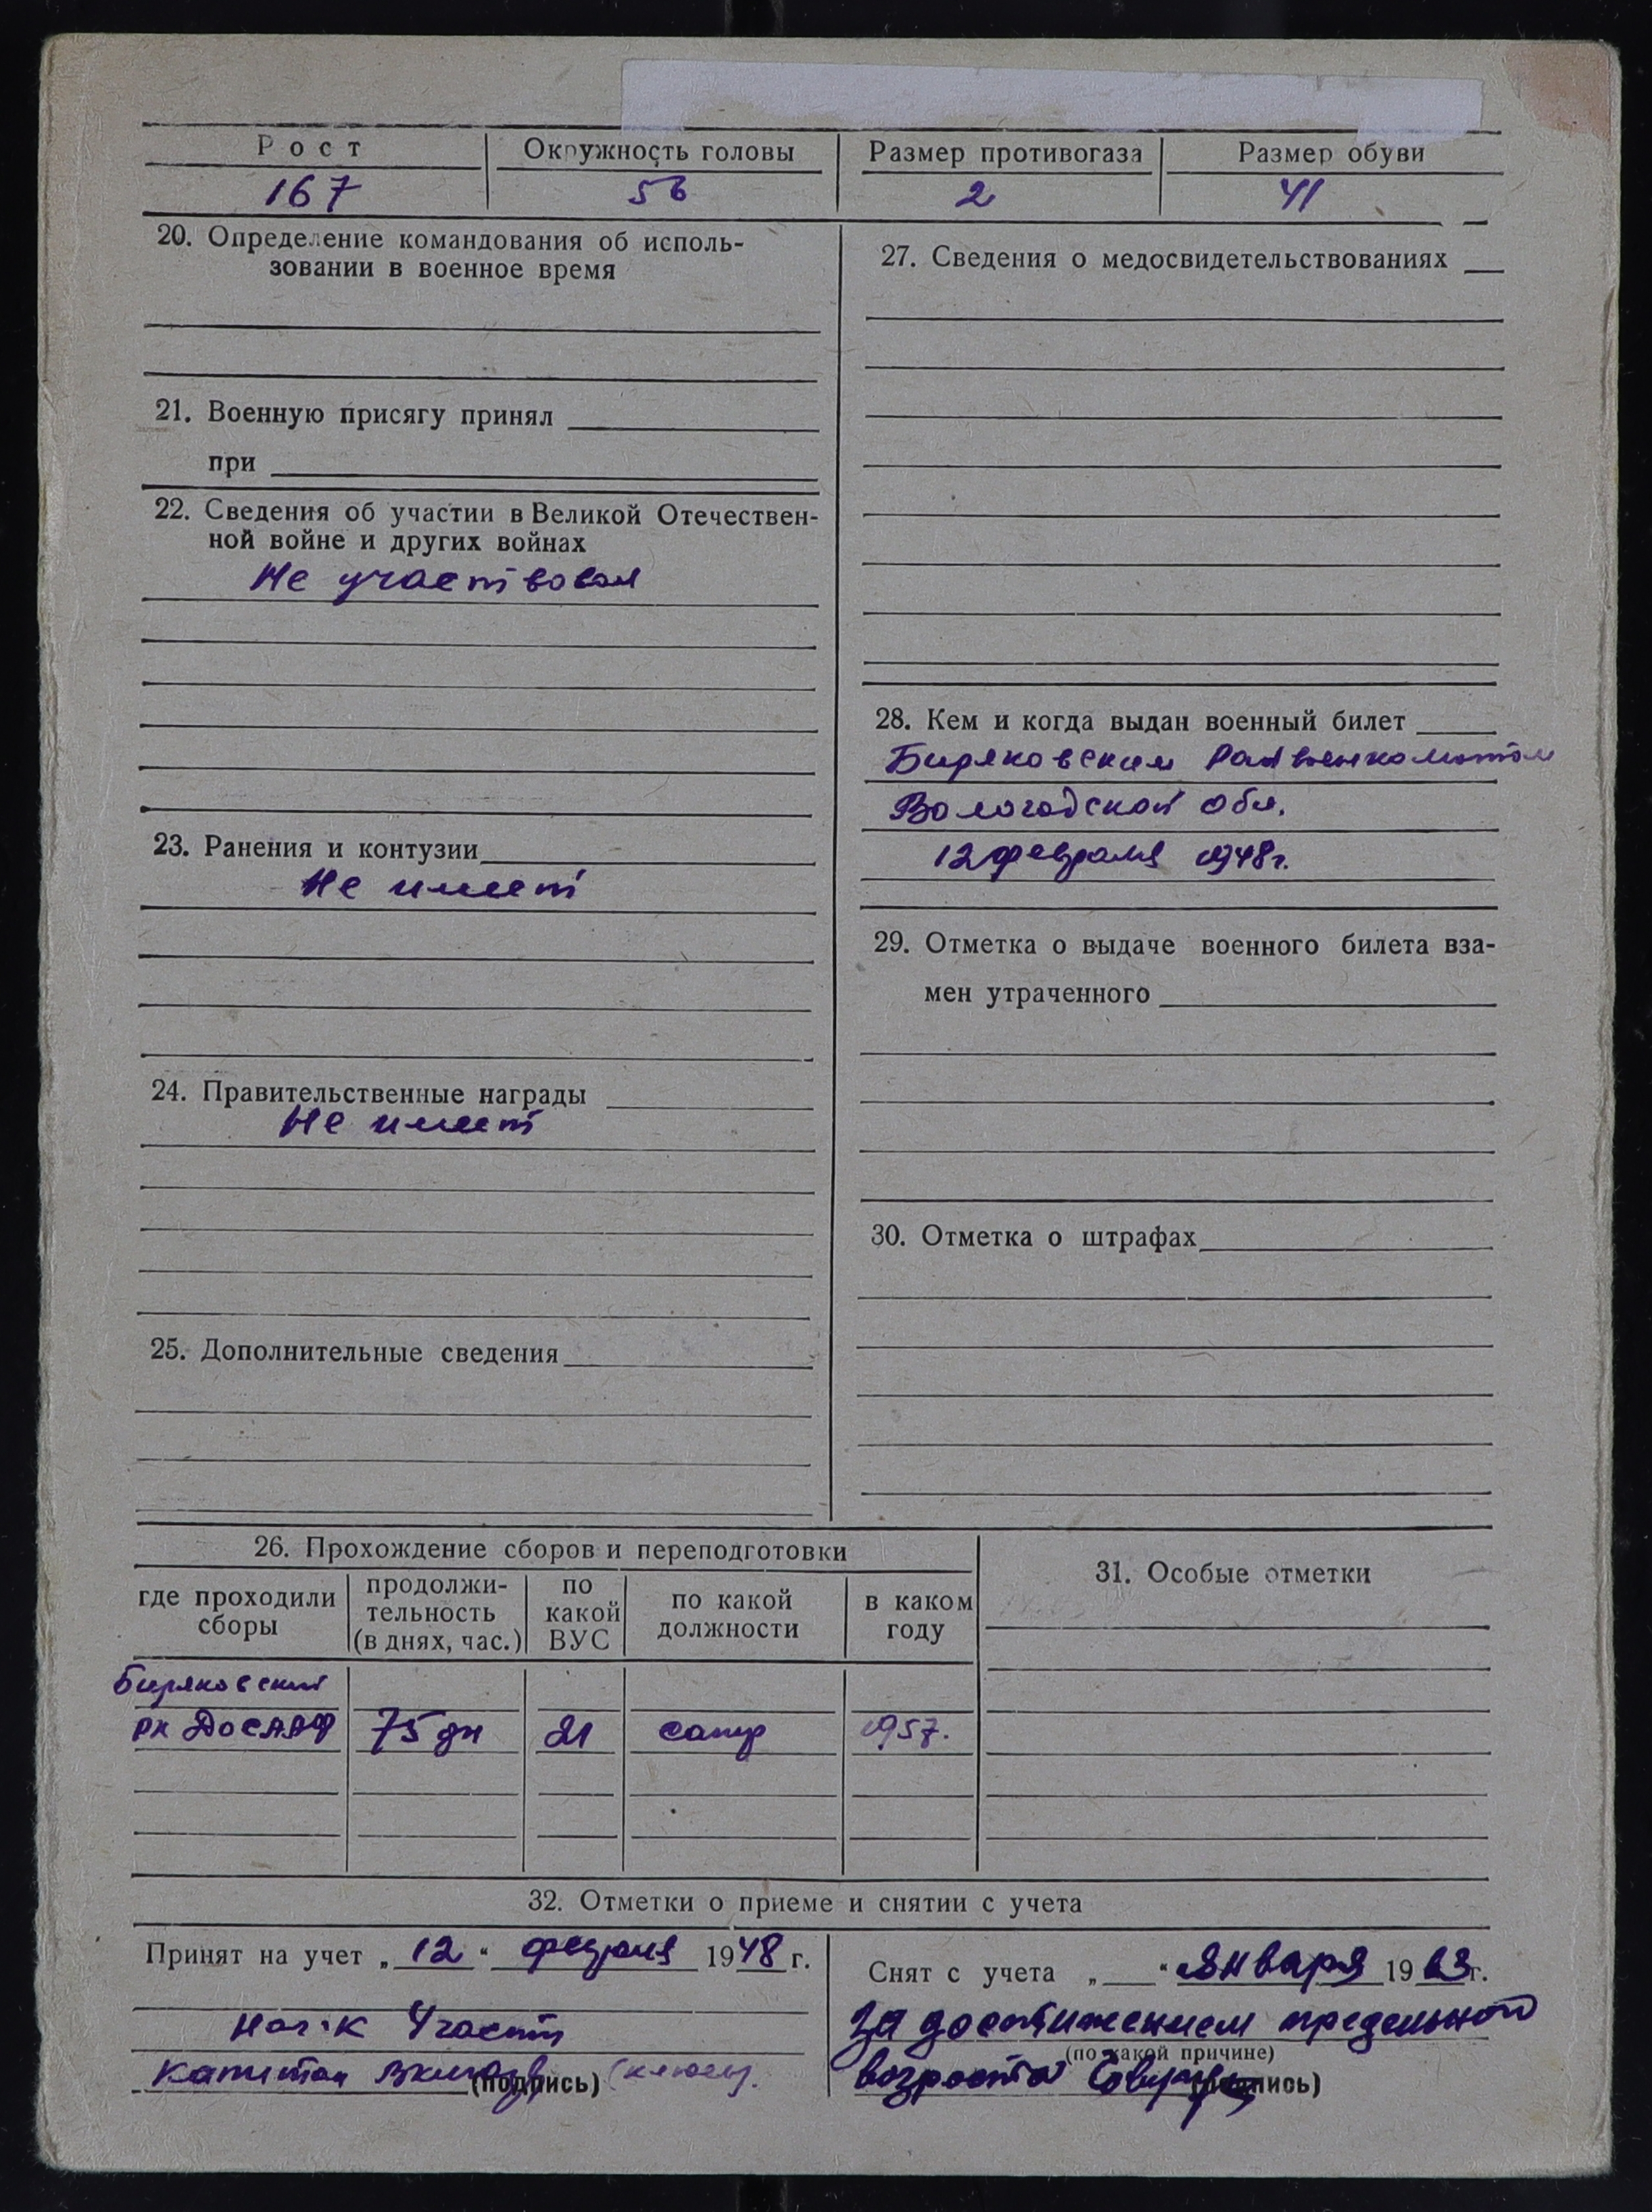 Рост Окружность головы Размер противогаза Размер обуви
167 56 2 41
20. Определение командования об исполь-
зовании в военное время
21. Военную присягу принял
при
22. Сведения об участии в Великой Отечествен-
ной войне и других войнах
Не участвовал
23. Ранения и контузии
Не имеет
24. Правительственные награды
Не имеет
25. Дополнительные сведения
27. Сведения о медосвидетельствованиях
28. Кем и когда выдан военный билет
Биряковским Райвоенкоматом
Вологодской обл.
12 февраля 1948 г.
29. Отметка о выдаче военного билета вза-
мен утраченного
30. Отметка о штрафах
26. Прохождение сборов и переподготовки
где проходили сборы продолжи-тельность (в днях, час.) по какой ВУС по какой должности в каком году
Биряковский
рк ДОСААФ 75 дн 21 сапер 1957.
31. Особые отметки
32. Отметки о приеме и снятии с учета
Принят на учет „12“ февраля 1948 г.
Нач-к 4 части
капитан (подпись)
Снят с учета „ “ января 1963 г.
За достижением предельного
(по какой причине)
возраста (подпись)